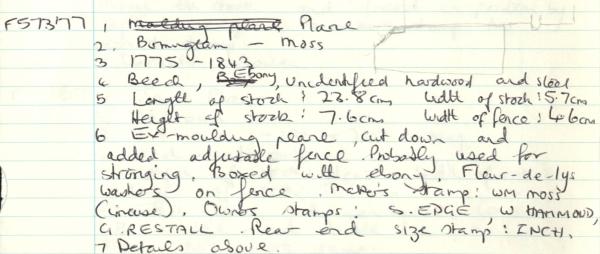 F573'77 1 moulding plane Plane
2. Birmingham — Moss
3 1775 - 1843
4 Beech, Box Ebony, unidentified hardwood and steel
5 Length of stock: 23.8cm Width of stock: 5.7cm
Height of stock: 7.6cm Width of fence: 4.6cm
6 Ex-moulding plane, cut down and
added adjustable fence. Probably used for
stringing. Boxed with ebony. Fleur-de-lys
washers on fence. Maker's stamp: WM MOSS
(incuse). Owners stamps: S. EDGE, W HAMMOND,
G. RESTALL. Rear end size stamp: INCH.
7 Details above.